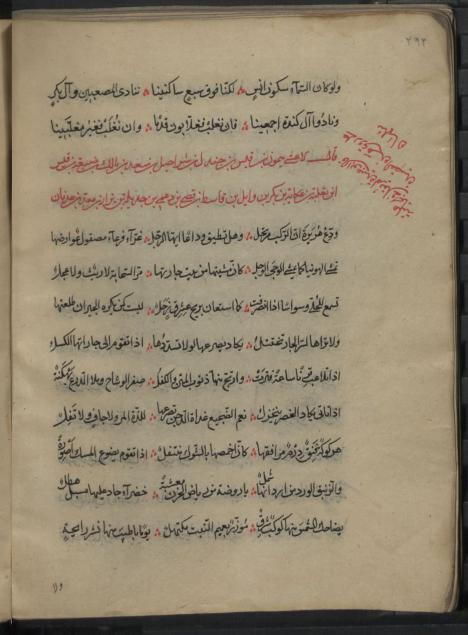 ٢٩٣
ولو كان السماء سكون انس ؞ لكنا فوق سبع ساكنينا ؞ تنادى المصعبين وآل بكر
ونادوا آل كندة اجمعينا ؞ فان نغلب فغلابون قدما ؞ وان نغلب فغير مغلبينا
قال الاعشى ميمون بن قيس بن جندل بن شراحيل بن سعد بن مالك بن ضبيعة بن قيس
ابن ثعلبة بن عكابة بن بكر بن وايل بن قاسط بن
ودع هريرة ان الركب مرتحل ؞ وهل تطيق وداعا ايها الرجل ؞ غراء فرعاء مصقول عوارضها
تمشى الهوينا كما يمشى الوجى الوحل ؞ كان مشيتها من بيت جارتها ؞ مر السحابة لا ريث ولا عجل
تسمع للحلى وسواسا اذا انصرفت ؞ كما استعان بريح عشرق زجل ؞ ليست كمن يكره الجيران طلعتها
ولا تراها لسر الجار تختتل ؞ يكاد يصرعها لولا تشددها ؞ اذا تقوم الى جاراتها الكسل
اذا تلاعب قرنا ساعة فترت ؞ وارتج منها ذنوب المتن والكفل ؞ صفر الوشاح وملا الدرع بهكنة
اذا تاتى يكاد الخصر ينخزل ؞ نعم الضجيع غداة الدجن تصرعها ؞ للذة المرء لا جاف ولا تفل
هركولة فنق درم مرافقها ؞ كان اخمصها بالشوك منتعل ؞ اذا تقوم يضوع المسك اصورة
والزنبق الورد من اردانها شمل ؞ ما روضة من رياض الحزن معشبة ؞ خضراء جاد عليها مسبل هطل
يضاحك الشمس منها كوكب شرق ؞ موزر بعميم النبت مكتهل ؞ يوما باطيب منها نشر رايحة